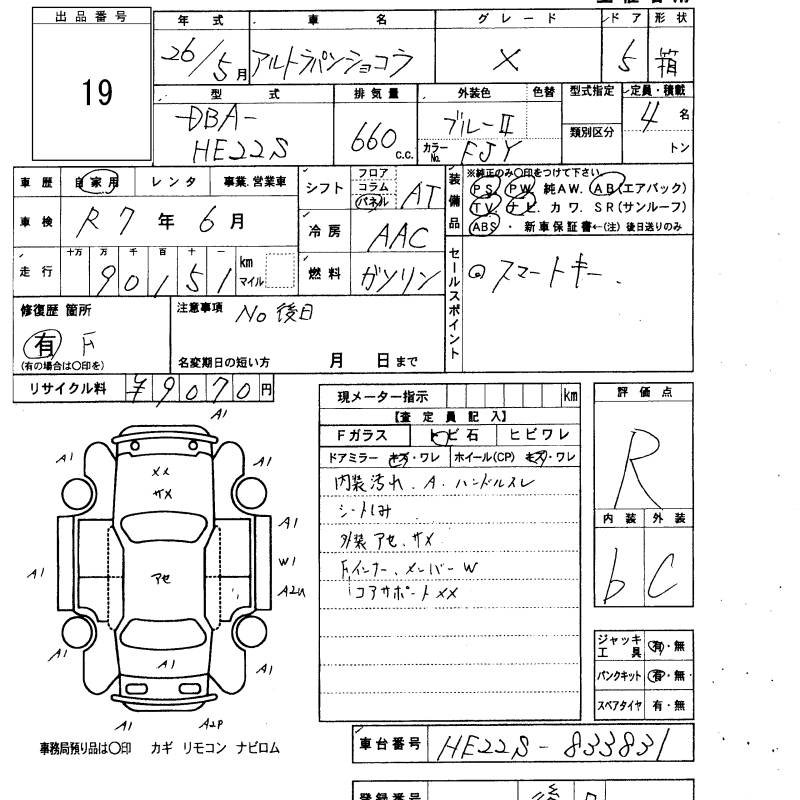 出品番号
19
年式 車名 グレード ドア 形状
26/5月 アルトラパンショコラ X 5 箱
型式 排気量 外装色 色替 型式指定 定員・積載
-DBA- 660 c.c. ブルーII 4 名
HE22S カラーNo. FJY 類別区分 トン
車歴 自家用 レンタ 事業.営業車
車検 R7年6月
走行 十万 万 千 百 十 一
90151 km マイル
シフト フロア コラム パネル AT
冷房 AAC
燃料 ガソリン
装備品 ※純正のみ〇印をつけて下さい
PS PW 純AW. AB(エアバック)
TV ナビ. カワ. SR(サンルーフ)
ABS ・ 新車保証書←(注) 後日送りのみ
セールスポイント
◎スマートキー.
修復歴 箇所
有 F
(有の場合は〇印を)
注意事項 No 後日
名変期日の短い方 月 日まで
リサイクル料 ¥9070円
現メーター指示 km
【査定員記入】
Fガラス トビ石 ヒビワレ
ドアミラー キズ・ワレ ホイール(CP) キズ・ワレ
内装汚れ. A. ハンドルスレ
シートしみ
外装 アセ、サメ
Fインナー、メンバーW
コアサポートXX
評価点
R
内装 外装
b C
ジャッキ工具 有・無
パンクキット 有・無
スペアタイヤ 有・無
A1
A1 A1
メメ
サメ
A1 A1
A1
W1
アセ
A1 A2U
A1 A1 A1
A1 A2P
事務局預り品は〇印 カギ リモコン ナビロム
車台番号 HE22S-833831
登録番号